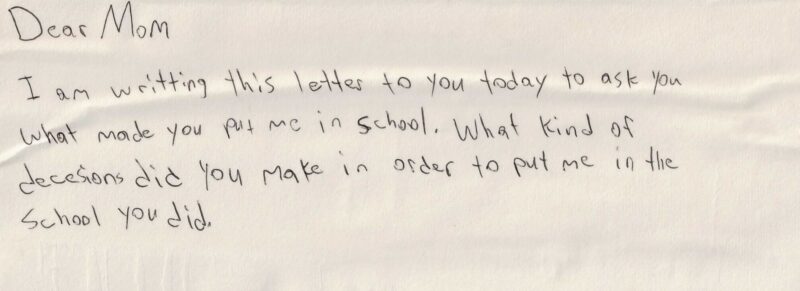 Dear Mom
I am writting this letter to you today to ask you
what made you put me in school. What kind of
decesions did you make in order to put me in the
school you did.